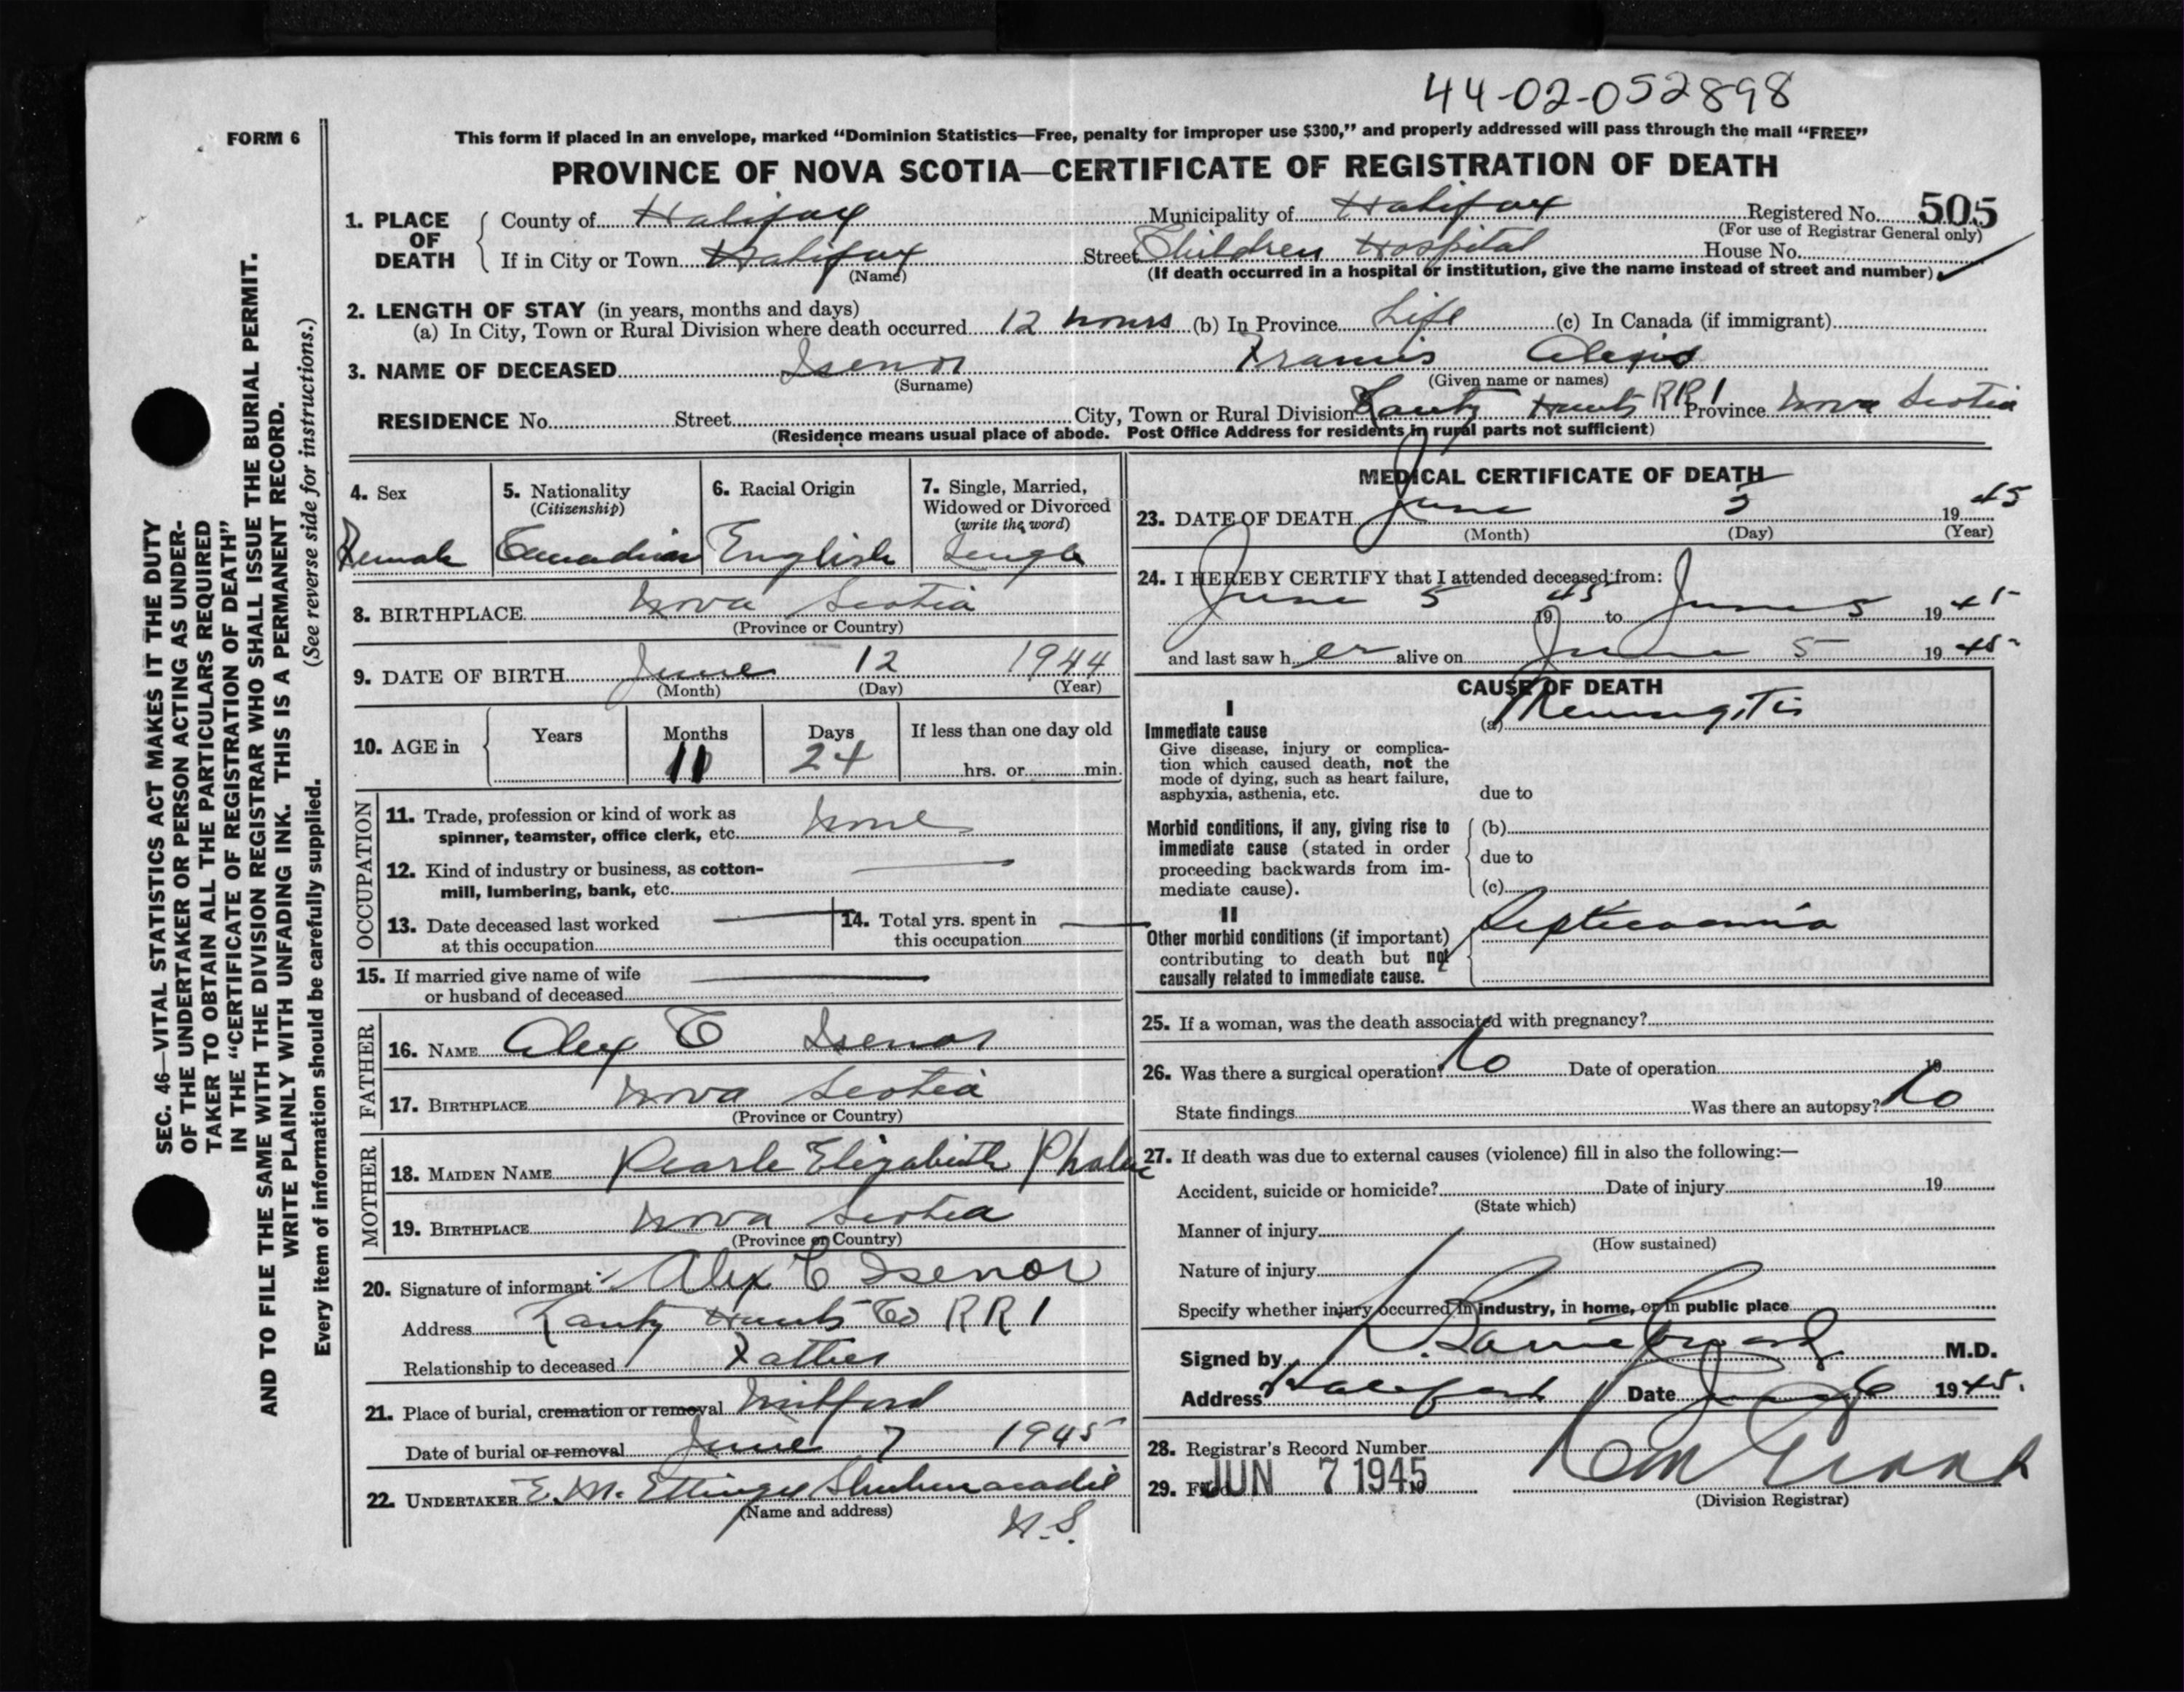 44-02-052898
FORM 6
This form if placed in an envelope, marked “Dominion Statistics—Free, penalty for improper use $300,” and properly addressed will pass through the mail “FREE”
PROVINCE OF NOVA SCOTIA—CERTIFICATE OF REGISTRATION OF DEATH
1. PLACE OF DEATH
County of Halifax Municipality of Halifax Registered No. 505
(For use of Registrar General only)
If in City or Town Halifax Street Children Hospital House No.
(Name) (If death occurred in a hospital or institution, give the name instead of street and number)
2. LENGTH OF STAY (in years, months and days)
(a) In City, Town or Rural Division where death occurred 12 hours (b) In Province Life (c) In Canada (if immigrant)
3. NAME OF DECEASED Isenor Francis Alexis
(Surname) (Given name or names)
RESIDENCE No. Street City, Town or Rural Division Lantz Hants RR1 Province Nova Scotia
(Residence means usual place of abode. Post Office Address for residents in rural parts not sufficient)
4. Sex Female
5. Nationality (Citizenship) Canadian
6. Racial Origin English
7. Single, Married, Widowed or Divorced (write the word) Single
8. BIRTHPLACE Nova Scotia
(Province or Country)
9. DATE OF BIRTH June 12 1944
(Month) (Day) (Year)
10. AGE in Years Months 11 Days 24 If less than one day old
hrs. or min.
OCCUPATION
11. Trade, profession or kind of work as
spinner, teamster, office clerk, etc. None
12. Kind of industry or business, as cotton-
mill, lumbering, bank, etc.
13. Date deceased last worked
at this occupation
14. Total yrs. spent in
this occupation
15. If married give name of wife
or husband of deceased
FATHER
16. NAME Alex C Isenor
17. BIRTHPLACE Nova Scotia
(Province or Country)
MOTHER
18. MAIDEN NAME Pearle Elizabeth
19. BIRTHPLACE Nova Scotia
(Province or Country)
20. Signature of informant Alex C Isenor
Address Lantz Hants Co RR1
Relationship to deceased Father
21. Place of burial, cremation or removal Milford
Date of burial or removal June 7 1945
22. UNDERTAKER E. M. Ettinger Shubenacadie
(Name and address) N.S.
MEDICAL CERTIFICATE OF DEATH
23. DATE OF DEATH June 5 1945
(Month) (Day) (Year)
24. I HEREBY CERTIFY that I attended deceased from:
June 5 1945 to June 5 1945
and last saw her alive on June 5 1945
CAUSE OF DEATH
I
Immediate cause (a) Meningitis
Give disease, injury or complica-
tion which caused death, not the
mode of dying, such as heart failure,
asphyxia, asthenia, etc. due to
Morbid conditions, if any, giving rise to (b)
immediate cause (stated in order
proceeding backwards from im- due to
mediate cause). (c)
II
Other morbid conditions (if important) Septicaemia
contributing to death but not
causally related to immediate cause.
25. If a woman, was the death associated with pregnancy?
26. Was there a surgical operation? No Date of operation 19
State findings Was there an autopsy? No
27. If death was due to external causes (violence) fill in also the following:—
Accident, suicide or homicide? Date of injury 19
(State which)
Manner of injury
(How sustained)
Nature of injury
Specify whether injury occurred in industry, in home, or in public place
Signed by M.D.
Address Halifax Date June 6 1945.
28. Registrar's Record Number
29. Filed JUN 7 1945
(Division Registrar)
SEC. 46—VITAL STATISTICS ACT MAKES IT THE DUTY
OF THE UNDERTAKER OR PERSON ACTING AS UNDER-
TAKER TO OBTAIN ALL THE PARTICULARS REQUIRED
IN THE “CERTIFICATE OF REGISTRATION OF DEATH”
AND TO FILE THE SAME WITH THE DIVISION REGISTRAR WHO SHALL ISSUE THE BURIAL PERMIT.
WRITE PLAINLY WITH UNFADING INK. THIS IS A PERMANENT RECORD.
Every item of information should be carefully supplied. (See reverse side for instructions.)